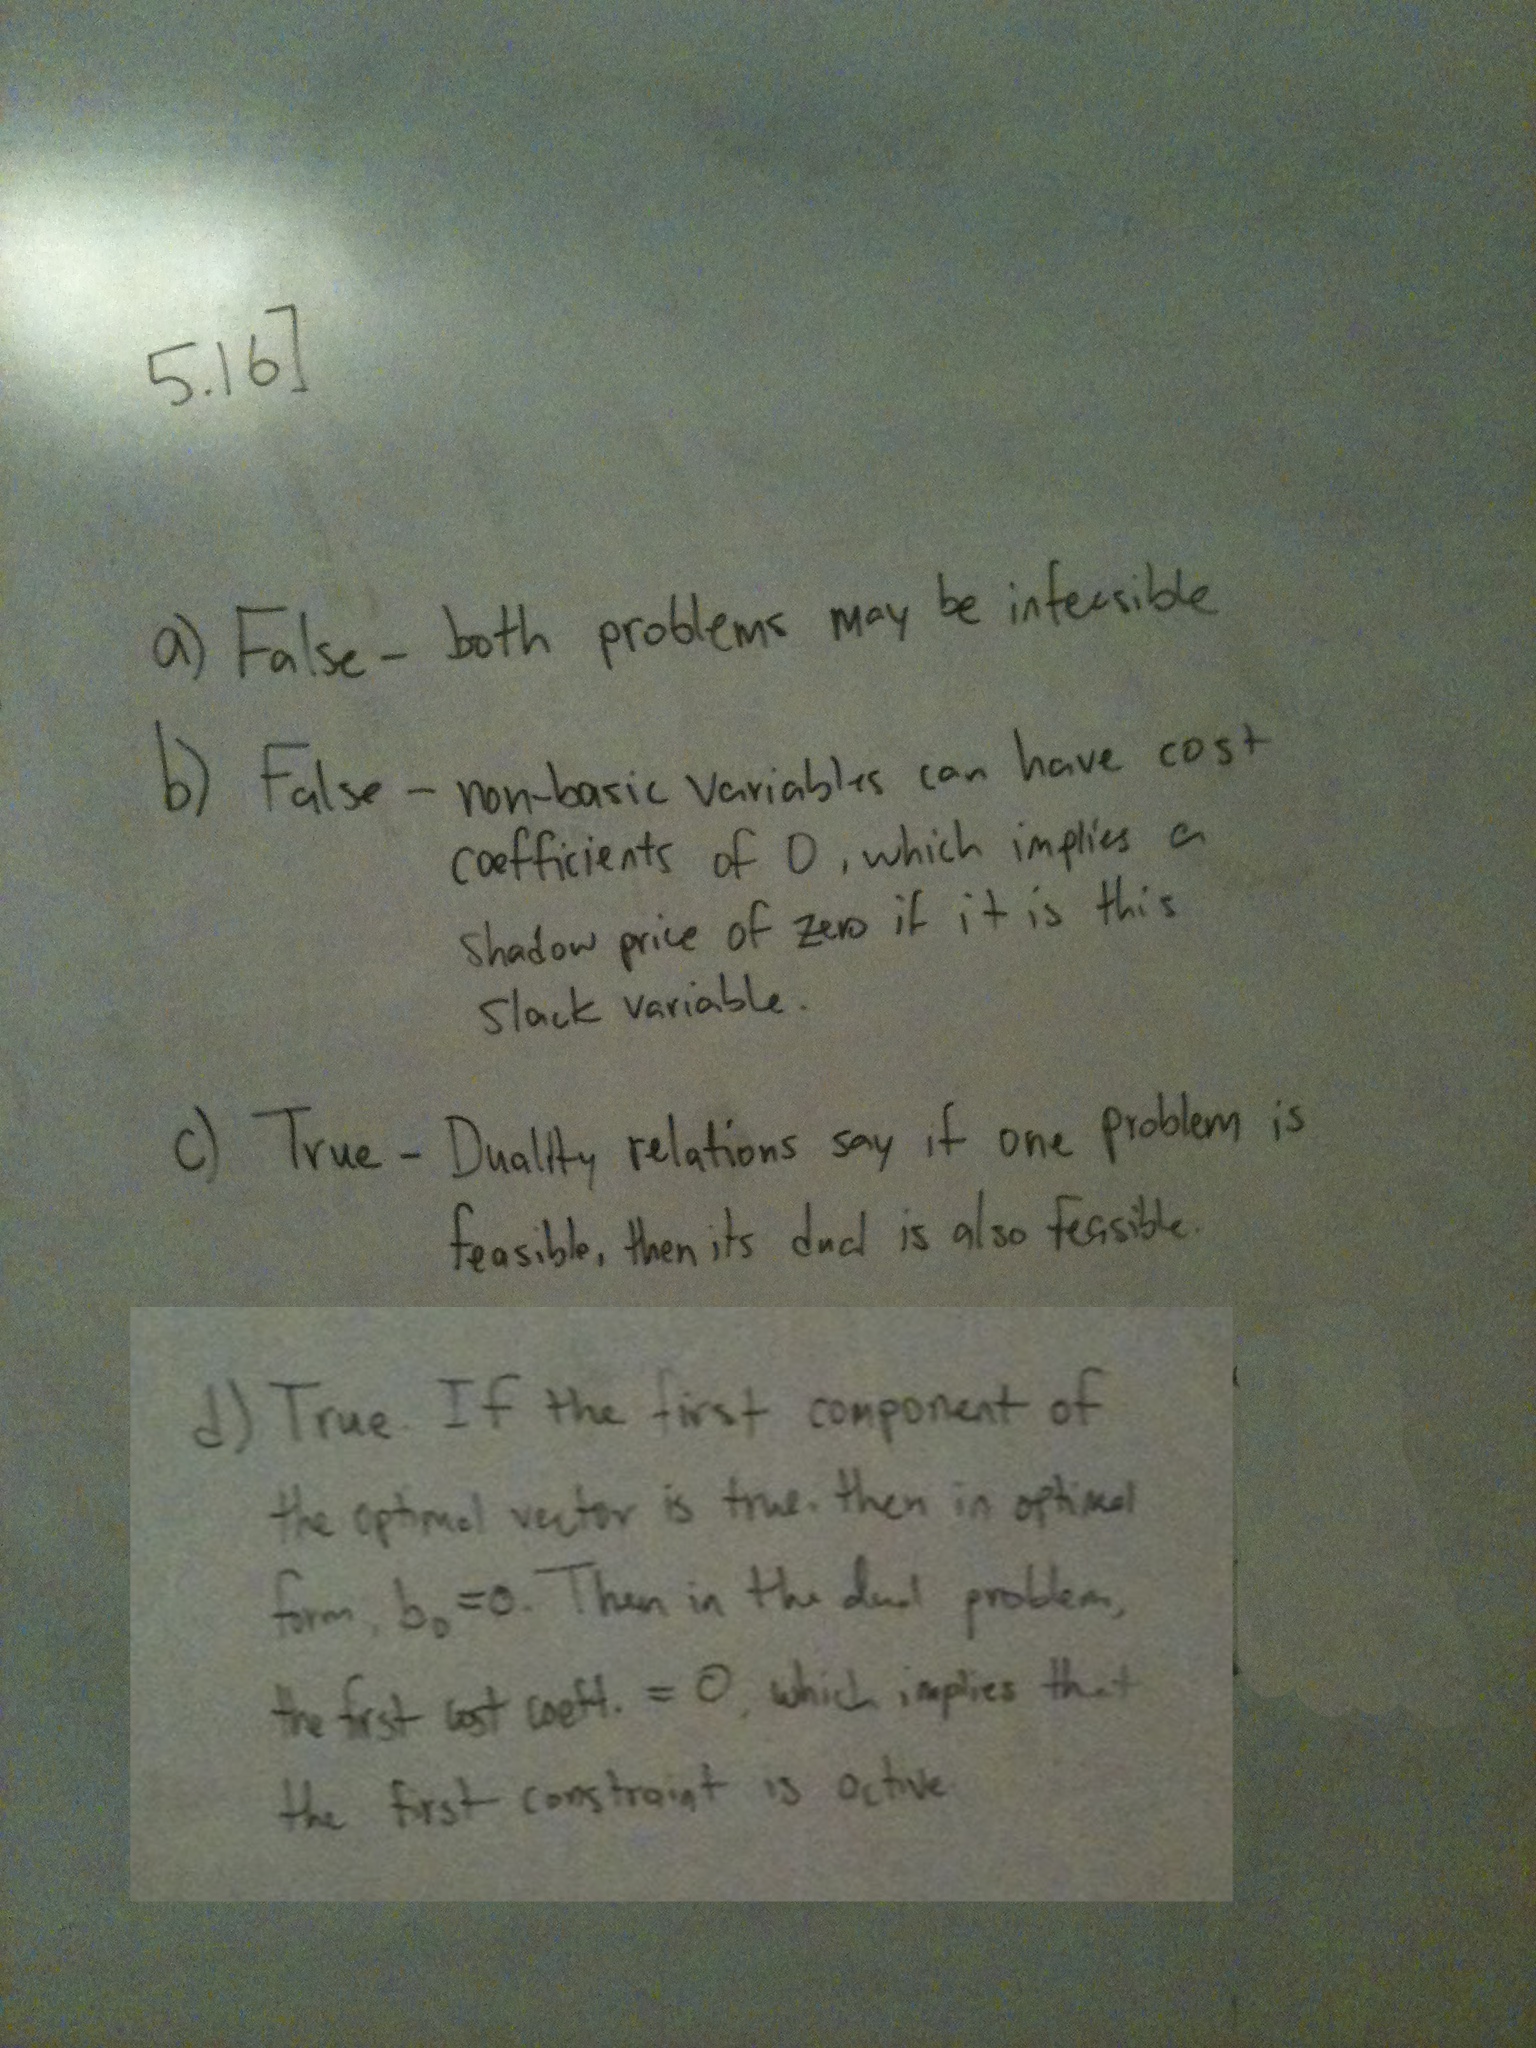 5.16]
a) False - both problems may be infeasible
b) False - non-basic variables can have cost
coefficients of 0, which implies a
shadow price of zero if it is this
slack variable.
c) True - Duality relations say if one problem is
feasible, then its dual is also feasible.
d) True. If the first component of
the optimal vector is true, then in optimal
form, b₀=0. Then in the dual problem,
the first cost coeff. = 0, which implies that
the first constraint is active